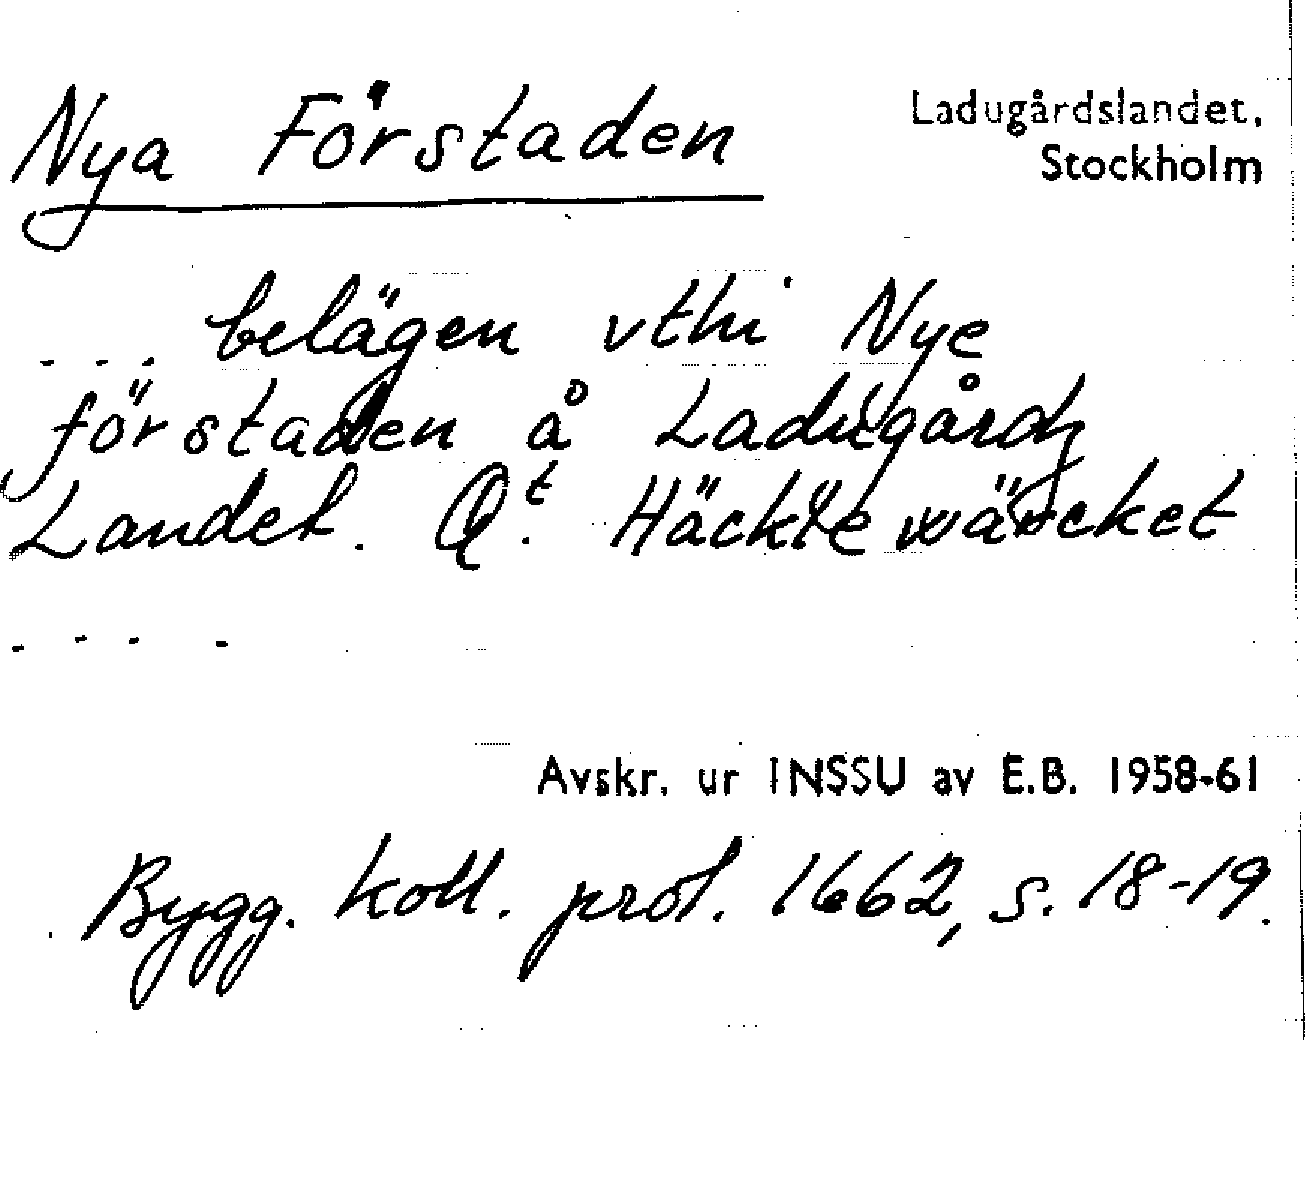 Nya Förstaden
Ladugårdslandet,
Stockholm
... belägen vthi Nye
förstaden å Ladugårdz
Landet. Qt. Häckle wärcket
....
Avskr. ur INSSU av E.B. 1958-61
Bygg. koll. prot. 1662, s. 18-19.